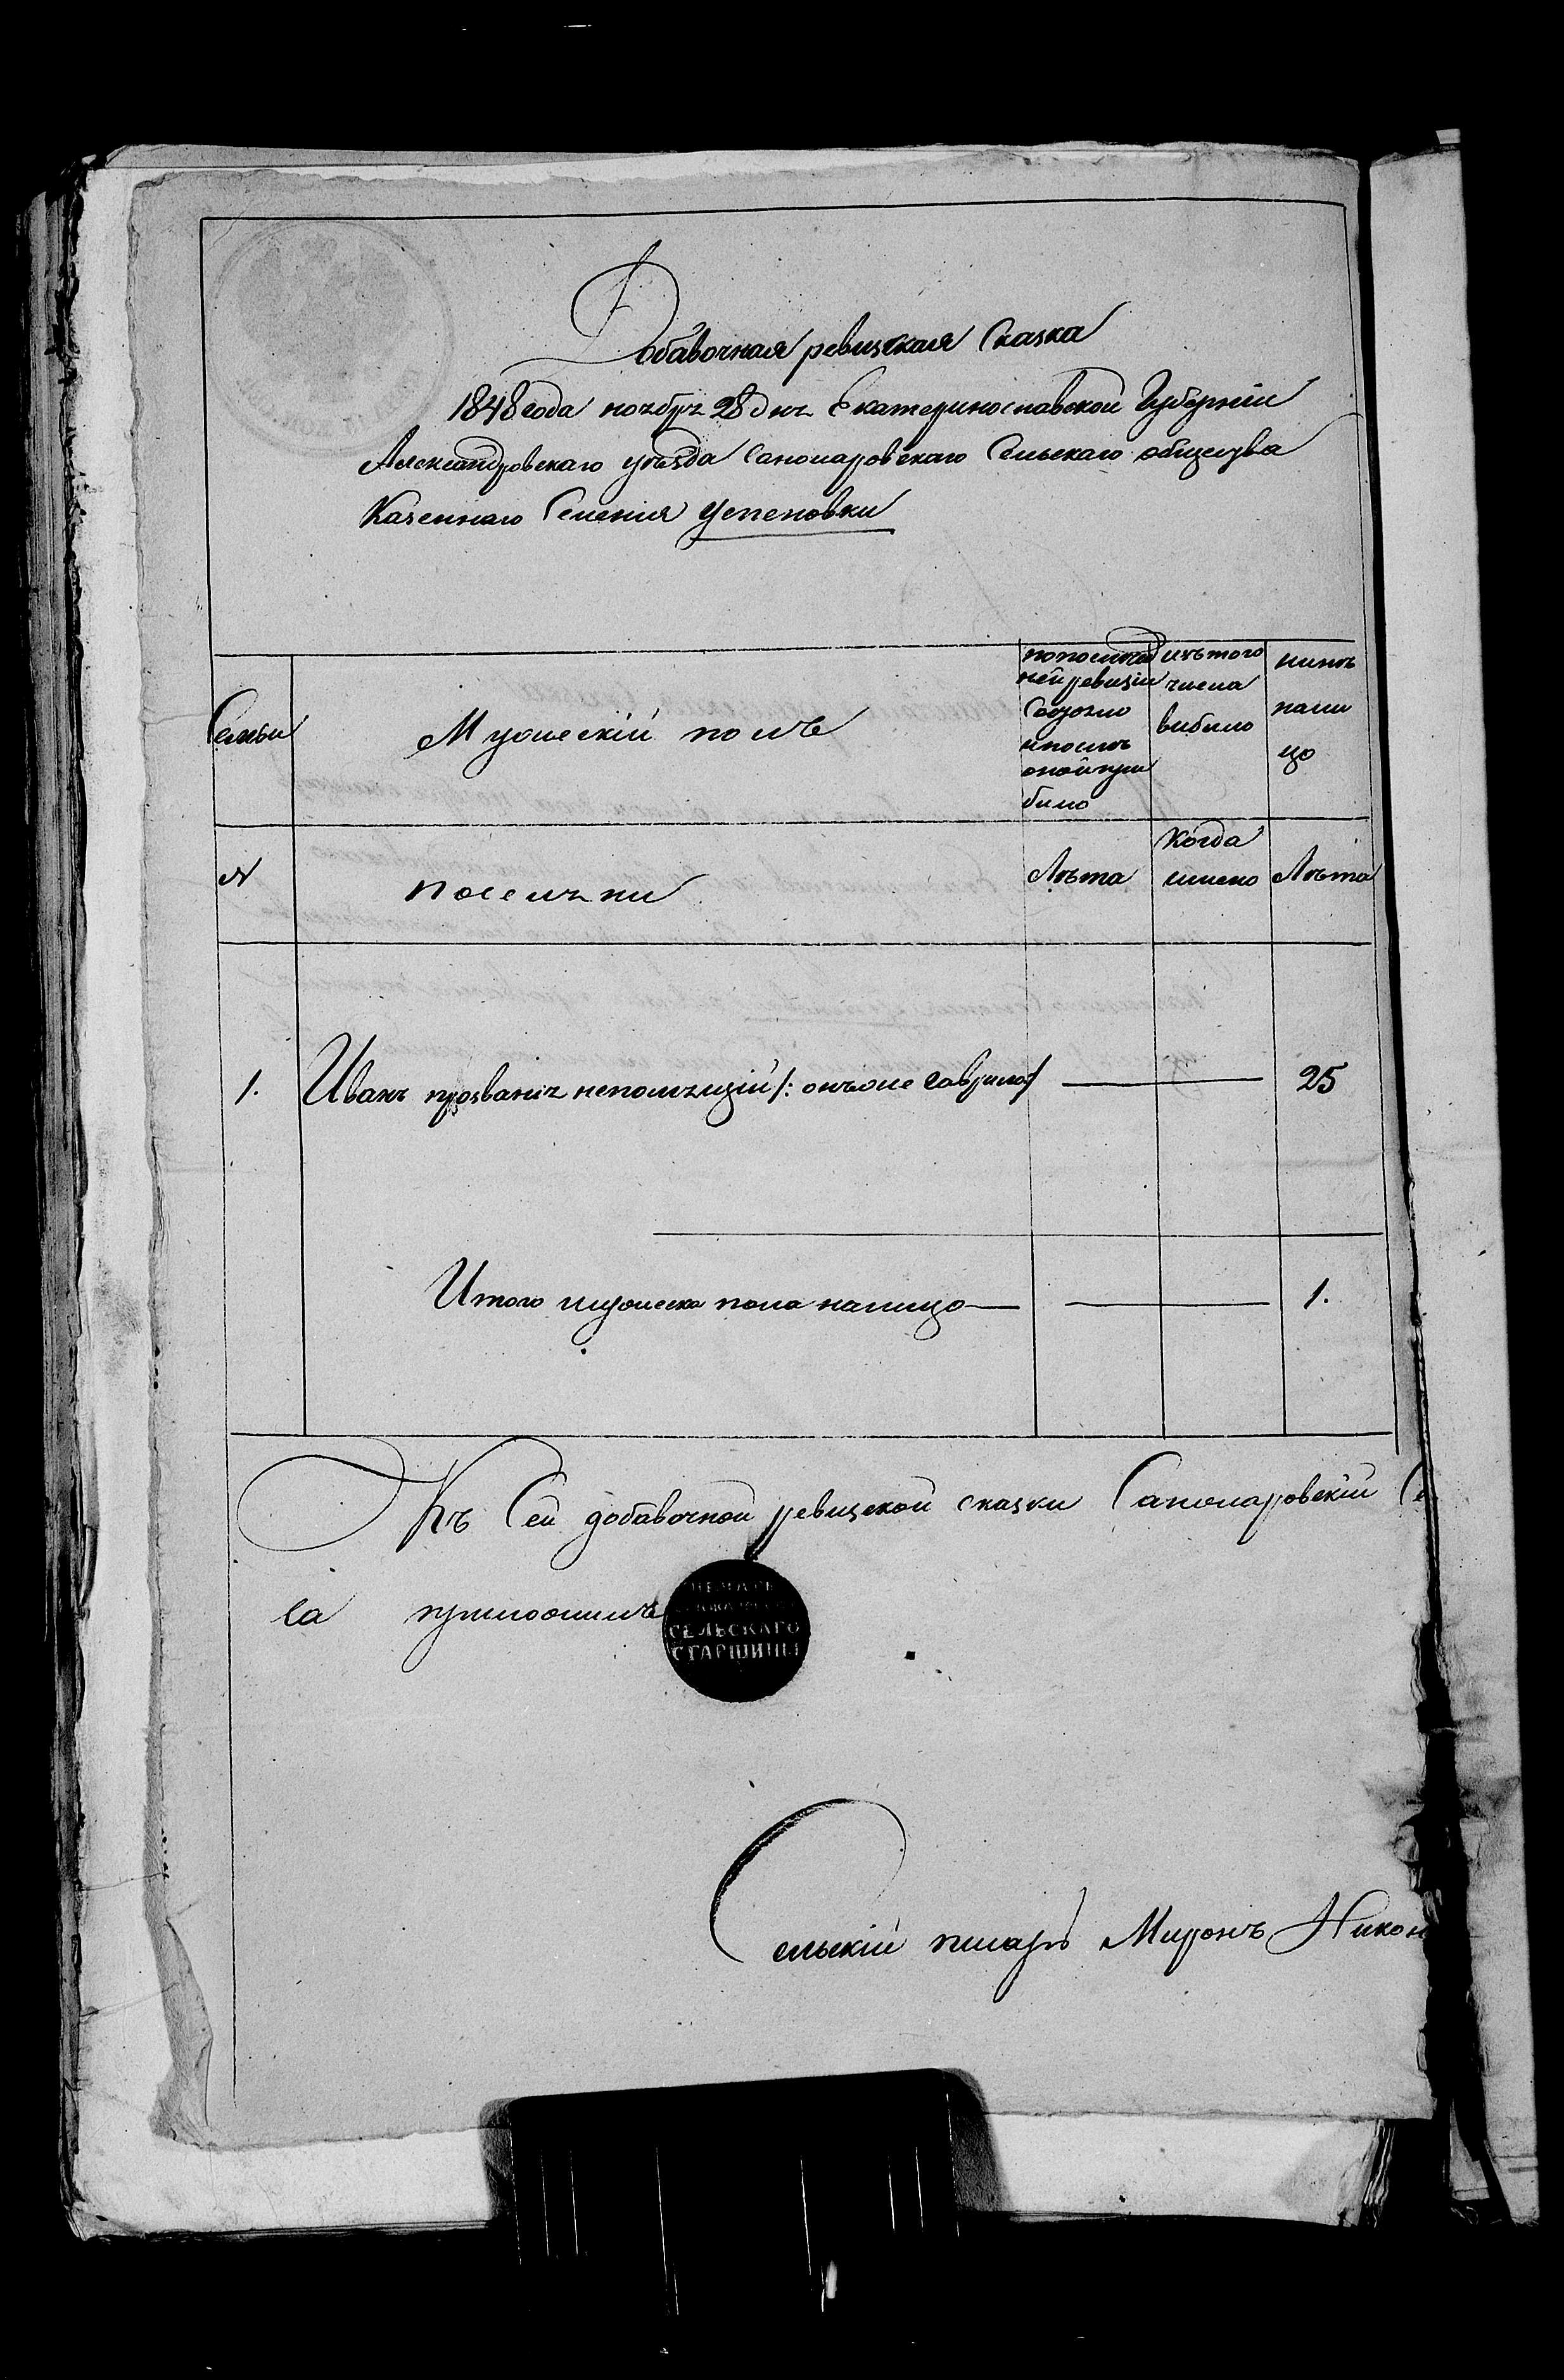 Добавочная ревизская Сказка
1848 года ноября 28 дня Екатеринославской Губерніи
Александровскаго уѣзда Санжаровскаго Сельскаго общества
Казеннаго Селенія Успеновки
Семьи
Мужескій полъ
по послѣд
ней ревизіи
Состояло
и послѣ
оной при
было
изъ того
числа
выбило
нинѣ
нали
цо
N
поселяни
Лѣта
Когда
имено
Лѣта
1.
Иванъ прозванія непомлящій /: онъже Гаврило :/
25
Итого мужеска пола налицо
1.
Къ Сей добавочной ревизской сказки Санжаровскій Се
са приложилъ
ПЕЧАТЬ
СЕЛЬСКАГО
СТАРШИНЫ
Сельскій писарь Миронъ Никон